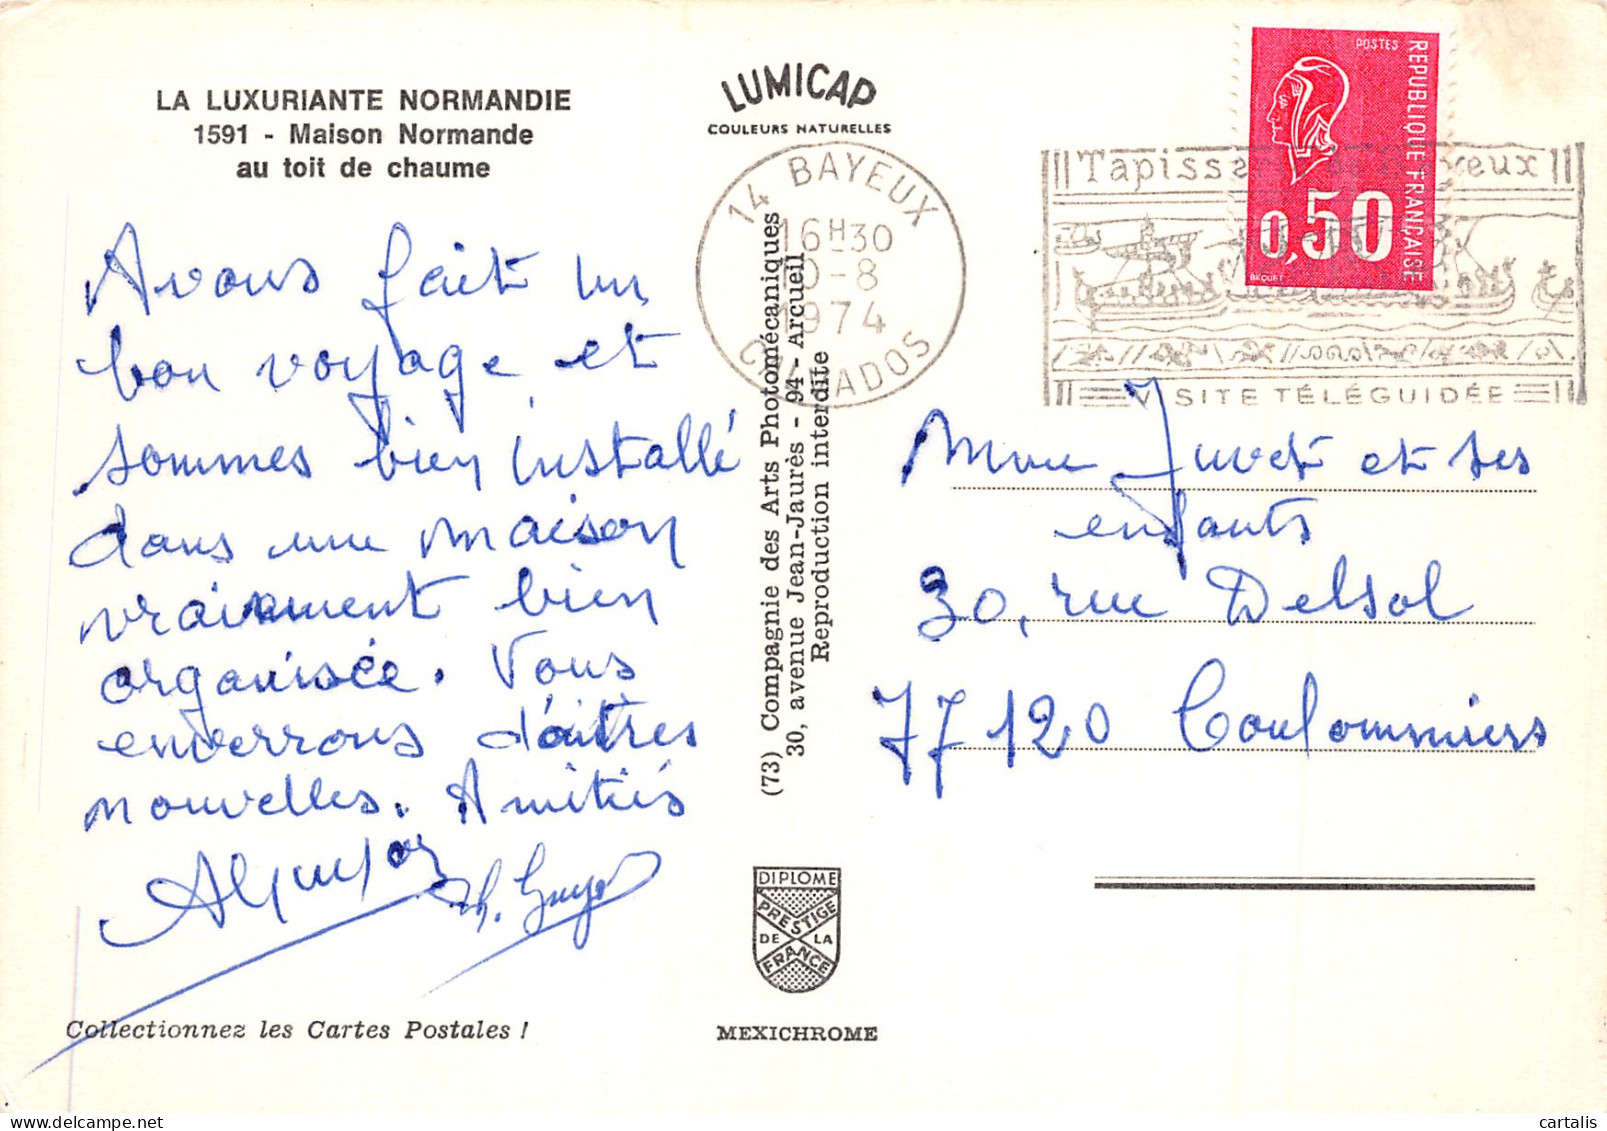 LA LUXURIANTE NORMANDIE
1591 - Maison Normande
au toit de chaume
Avons fait un
bon voyage et
sommes bien installé
dans une maison
vraiment bien
organisée. Vous
enverrons d'autres
nouvelles. Amitiés
Collectionnez les Cartes Postales !
LUMICAP
COULEURS NATURELLES
14 BAYEUX
16H30
-8
1974
CALVADOS
(73) Compagnie des Arts Photomécaniques
30, avenue Jean-Jaurès - 94 - Arcueil
Reproduction interdite
DIPLOME
PRESTIGE
DE LA
FRANCE
MEXICHROME
POSTES
REPUBLIQUE FRANÇAISE
0,50
BEQUET
Tapisserie de Bayeux
VISITE TÉLÉGUIDÉE
Mme Juvet et ses
enfants
30, rue Delsol
77120 Coulommiers
cartalis